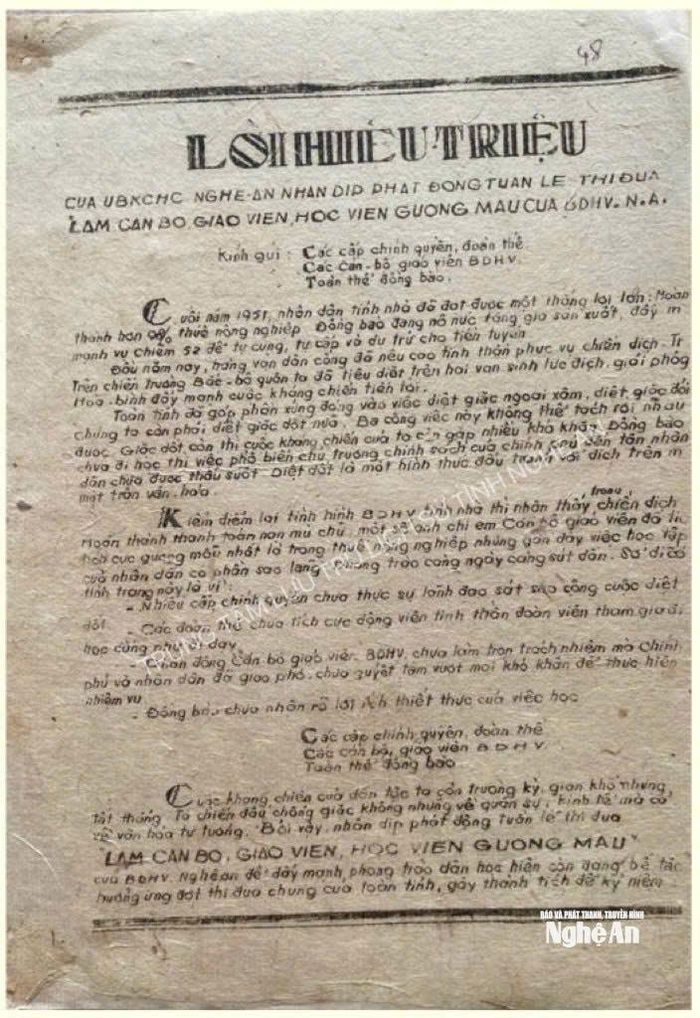 48
LỜI HIỆU TRIỆU
CỦA UBKCHC NGHỆ-AN NHÂN DỊP PHÁT ĐỘNG TUẦN LỄ THI ĐUA
LÀM CÁN BỘ, GIÁO VIÊN, HỌC VIÊN GƯƠNG MẪU CỦA BDHV. N.A.
Kính gửi: Các cấp chính quyền, đoàn thể
Các Cán-bộ giáo viên BDHV.
Toàn thể đồng bào.
Cuối năm 1951, nhân dân tỉnh nhà đã đạt được một thắng lợi lớn: Hoàn
thành hơn thuế nông nghiệp. Đồng bào đang nô nức tăng gia sản xuất, đẩy m
mạnh vụ Chiêm 52 để tự cung, tự cấp và dự trữ cho tiền tuyến
Đầu năm nay, hàng vạn dân công đã nêu cao tinh thần phục vụ chiến dịch. Tr
Trên chiến trường Bắc-bộ quân ta đã tiêu diệt trên hai vạn sinh lực địch, giải phóg
Hoà-bình đẩy mạnh cuộc kháng chiến tiến tới.
Toàn tỉnh đã góp phần xứng đáng vào việc diệt giặc ngoại xâm, diệt giặc đói
chúng ta còn phải diệt giặc dốt nữa. Ba công việc này không thể tách rời nhau
được. Giặc dốt còn thì cuộc kháng chiến của ta còn gặp nhiều khó khăn. Đồng bào
chưa đi học thì việc phổ biến chủ trương chính sách của chính phủ đến tận nhân
dân chưa được thấu suốt. Diệt dốt là một hình thức đấu tranh với địch trên m
mặt trận văn-hoá.
Kiểm điểm lại tình hình BDHV tỉnh nhà thì nhận thấy trong chiến dịch
Hoàn thành thanh toán nạn mù chữ, một số anh chị em Cán bộ giáo viên đã
tích cực gương mẫu nhất là trong thuế nông nghiệp nhưng gần đây việc học tập
của nhân dân có phần sao lãng. Phong trào càng ngày càng sút dần. Sở dĩ có
tình trạng này là vì:
- Nhiều cấp chính quyền chưa thực sự lãnh đạo sát sao công cuộc diệt
dốt.
- Các đoàn thể chưa tích cực động viên tinh thần đoàn viên tham gia đi
học cũng như đi dạy.
- Toàn động Cán bộ giáo viên BDHV, chưa làm tròn trách nhiệm mà Chính
phủ và nhân dân đã giao phó, chưa quyết tâm vượt mọi khó khăn để thực hiện
nhiệm vụ
- Đồng bào chưa nhận rõ lợi ích thiết thực của việc học
Các cấp chính quyền, đoàn thể
Các cán bộ, giáo viên BDHV.
Toàn thể đồng bào
Cuộc kháng chiến của dân tộc ta còn trường kỳ, gian khổ nhưng
tất thắng. Ta chiến đấu chống giặc không những về quân sự, kinh tế mà cả
về văn hóa tư tưởng. Bởi vậy, nhân dịp phát động tuần lễ thi đua
"LÀM CÁN BỘ, GIÁO VIÊN, HỌC VIÊN GƯƠNG MẪU"
của BDHV. Nghệ an để đẩy mạnh phong trào dân học hiện còn đang bế tắc
hưởng ứng đợt thi đua chung của toàn tỉnh, gây thành tích để kỷ niệm
BÁO VÀ PHÁT THANH, TRUYỀN HÌNH
Nghệ An